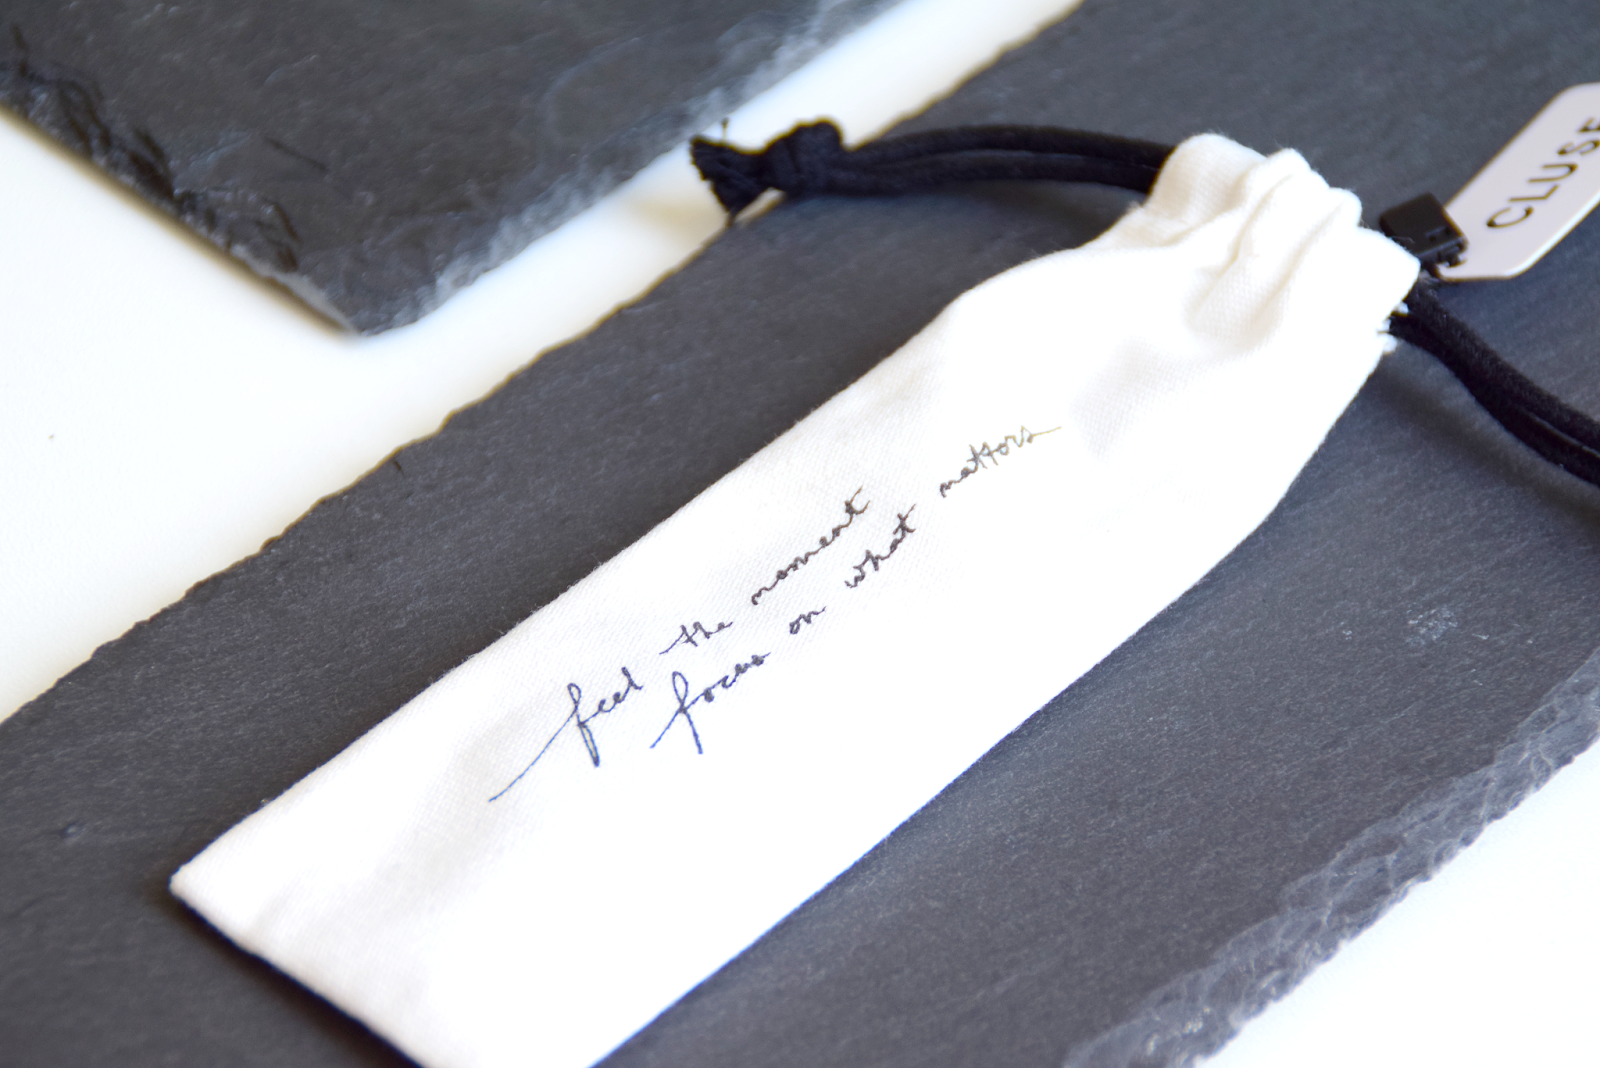 feel the moment
focus on what matters
CLUSE